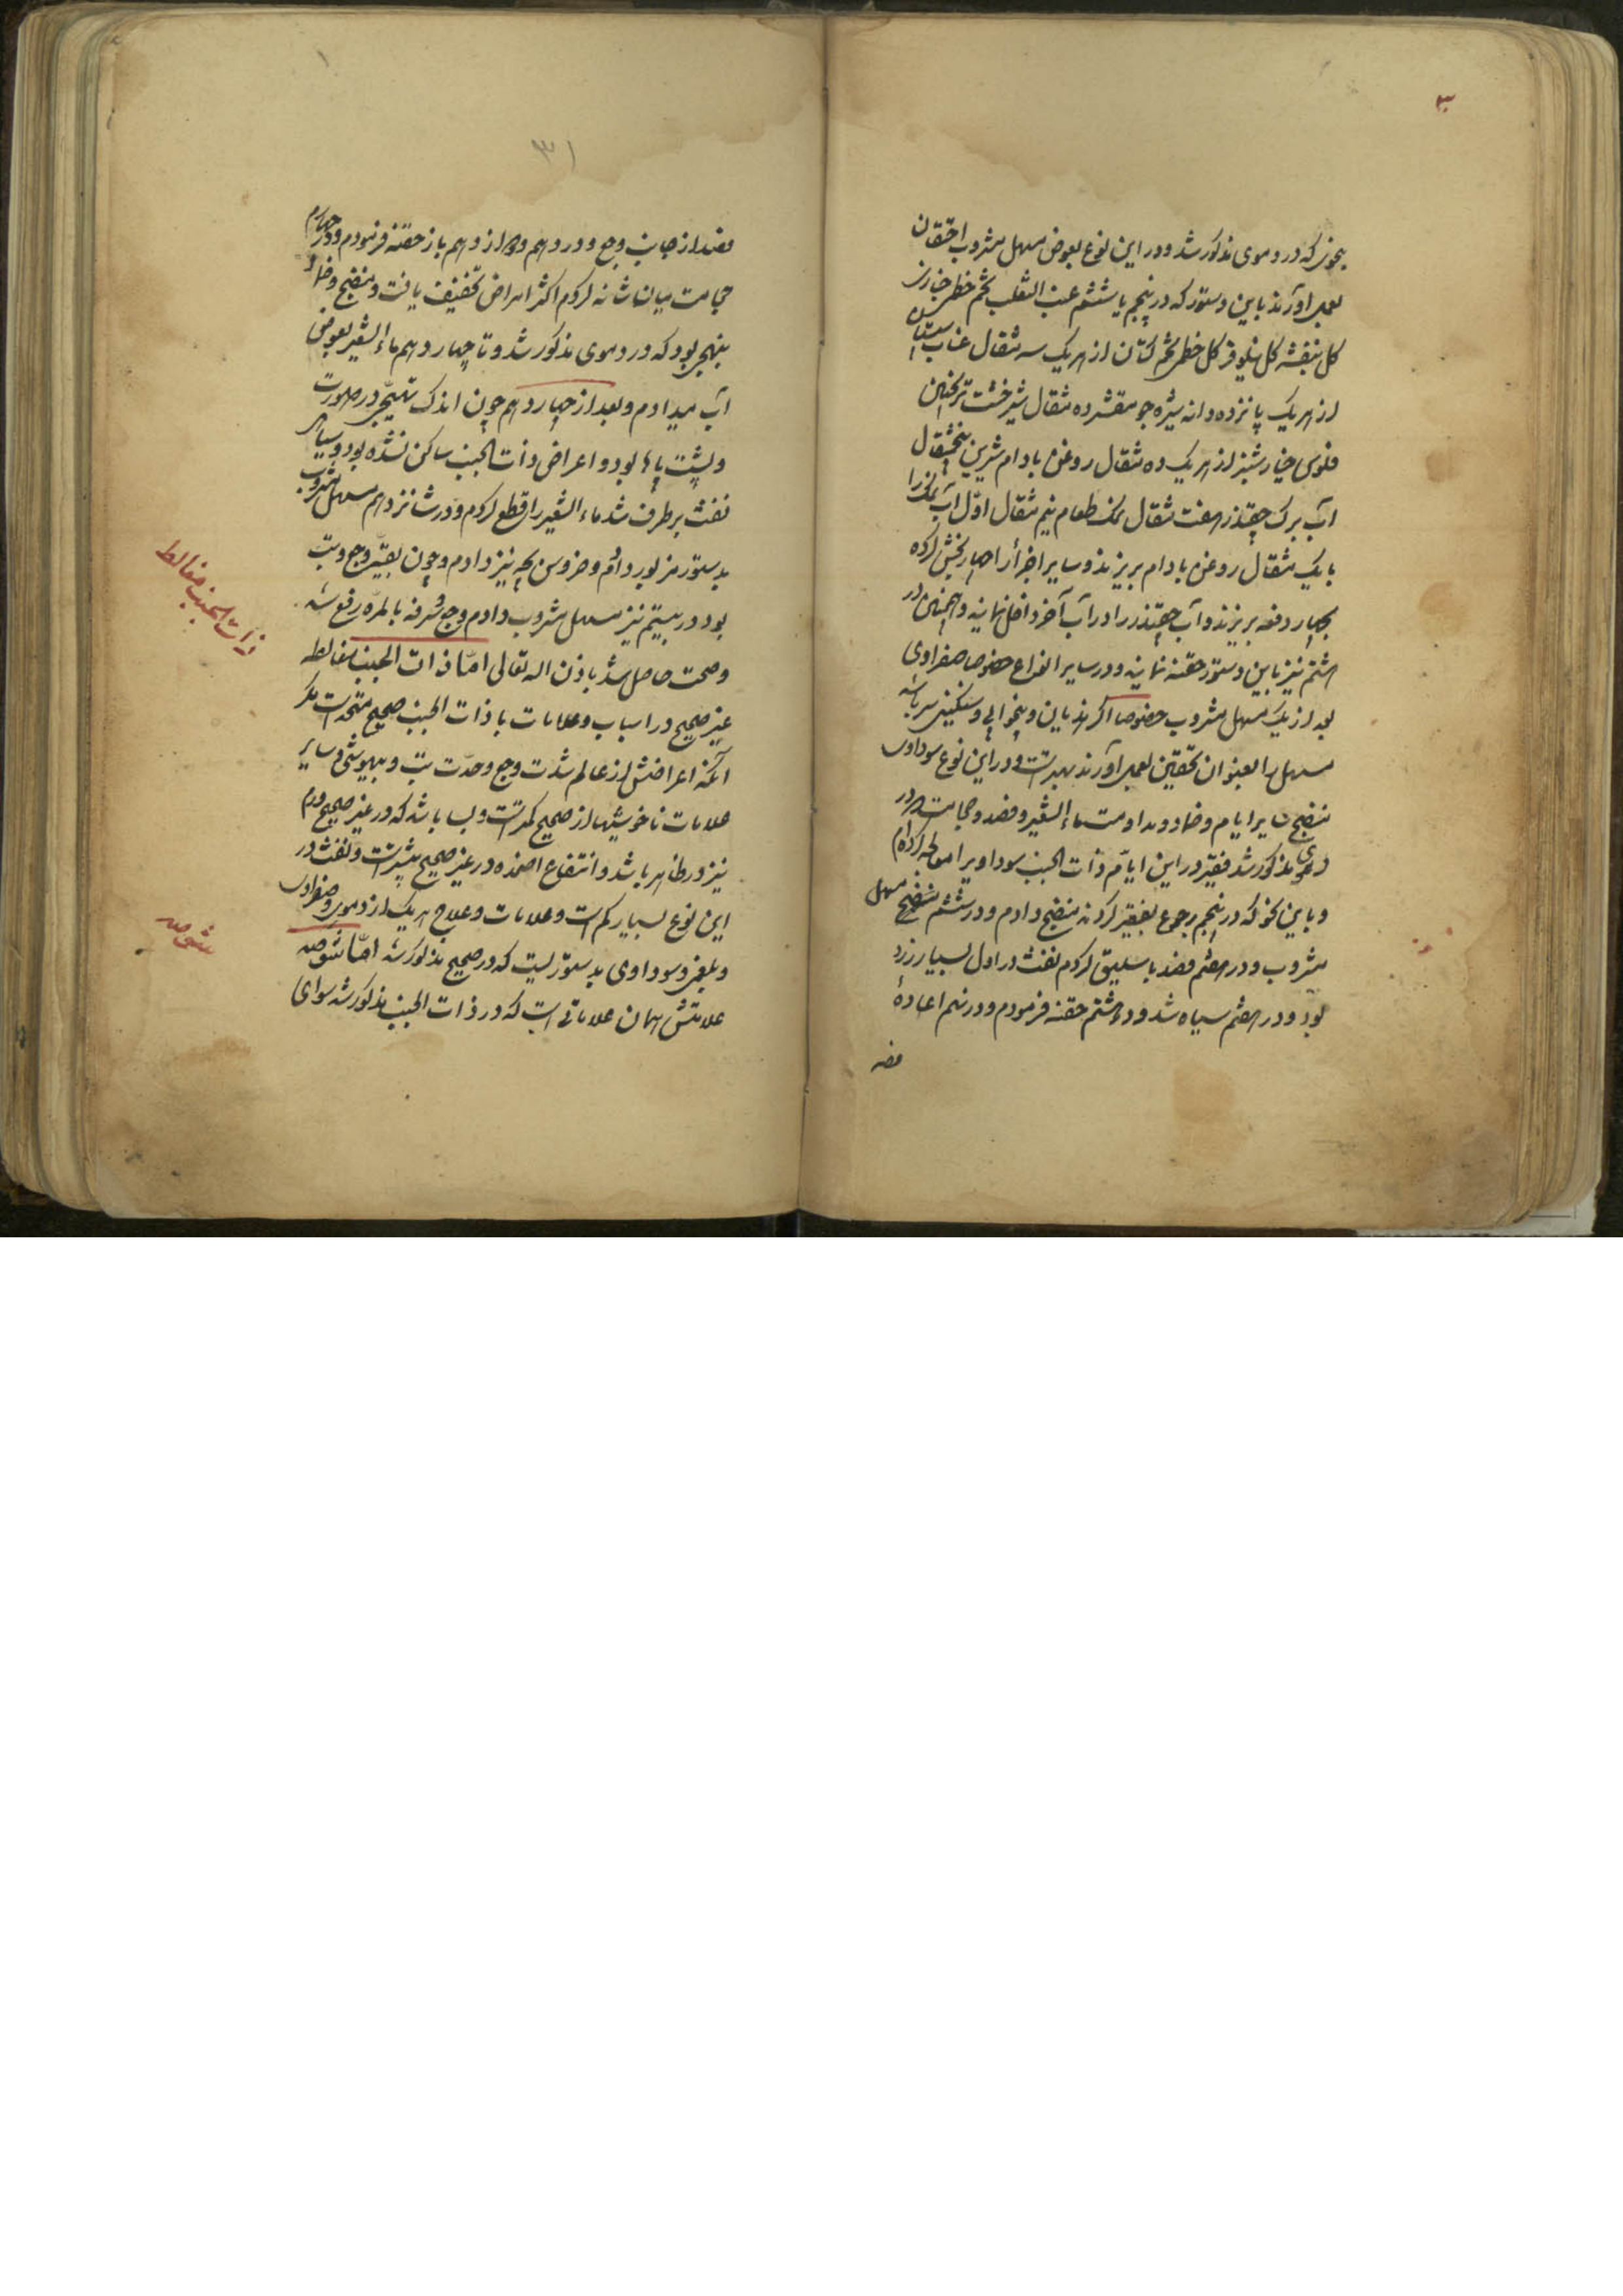 ۳
بنحوی که در دموی مذکور شد و در این نوع بعوض مسهل مشروب احتقان
بعمل آورند باین دستور که در پنجم یا ششم عنب الثعلب تخم خطمی خبازی
گل بنفشه گل نیلوفر گل خطمی تخم کتان از هریک سه مثقال عناب سپستان
از هریک پانزده دانه شیره جو مقشر ده مثقال شیرخشت ترنجبین
فلوس خیارشنبر از هریک ده مثقال روغن بادام شیرین پنجمثقال
آب برک چقندر هفت مثقال نمک طعام نیم مثقال اول آب نمک را
با یک مثقال روغن بادام بریزند و سایر اجزا را چهار بخش کرده
بچهار دفعه بریزند و آب چقندر را در آب آخر داخل نمایند و همچنین در
هشتم نیز باین دستور حقنه نمایند و در سایر انواع خصوصا صفراوی
بعد از یک مسهل مشروب خصوصا اگر هذیان و بیخوابی و سنگینی سر باشد
مسهل را بعنوان تحقین بعمل آورند بهتر است و در این نوع سوداوی
منضج سایر ایام و ضماد و مداومت ماء الشعیر و فصد و حجامت در
دموی مذکور شد فقیر در این ایام ذات الجنب سوداویرا معالجه کرده‌ام
و باین نحو که در پنجم رجوع بفقیر کردند منضج دادم و در ششم منضج مسهل
مشروب و در هفتم فصد باسلیق کردم نفث در اول بسیار زرد
بود و در هفتم سیاه شد و در هشتم حقنه فرمودم و در نهم اعادهٔ
فصد
۳۱
فصد از جانب وجع و در دهم و دوازدهم باز حقنه فرمودم و در چهاردهم
حجامت میان شانه کردم اکثر امراض تخفیف یافت و منضج و ضماد
بنهجی بود که در دموی مذکور شد و تا چهاردهم ماء الشعیر بعوض
آب میدادم و بعد از چهاردهم چون اندک تهیجی در صورت
و پشت پاها بود و اعراض ذات الجنب ساکن نشده بود و سیاهی
نفث برطرف شد ماء الشعیر را قطع کردم و در شانزدهم مسهل مشروب
بدستور مزبور دادم و خروس بچه نیز دادم و چون بقیه وجع و تب
بود در بیستم نیز مسهل مشروب دادم وجع و سرفه بالمره رفع شد
و صحت حاصل شد باذن اله تعالی اما ذات الجنب مغالطه
غیر صحیح در اسباب و علامات با ذات الجنب صحیح متحد است مگر
آنکه اعراضش از عالم شدت وجع و حدت تب و بیهوشی و سایر
علامات ناخوشیها از صحیح کمتر است و بسا باشد که در غیر صحیح ورم
نیز در ظاهر باشد و انتفاع اضمده در غیر صحیح بیشتر است و نفث در
این نوع بسیار کم است و علامات و علاج هریک از دموی و صفراوی
و بلغمی و سوداوی بدستوریست که در صحیح مذکور شد اما شوصه
علامتش همان علاماتی است که در ذات الجنب مذکور شد سوای
ذات الجنب مغالط
شوصه